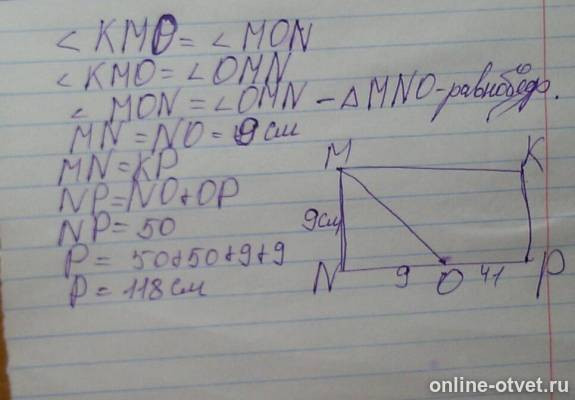 ∠KMO = ∠MON
∠KMO = ∠OMN
∠MON = ∠OMN – △MNO - равнобедр.
MN = NO = 9 см
MN = KP
NP = NO + OP
NP = 50
P = 50+50+9+9
P = 118 см
M
K
9 см
N
9
O
41
P
online-otvet.ru